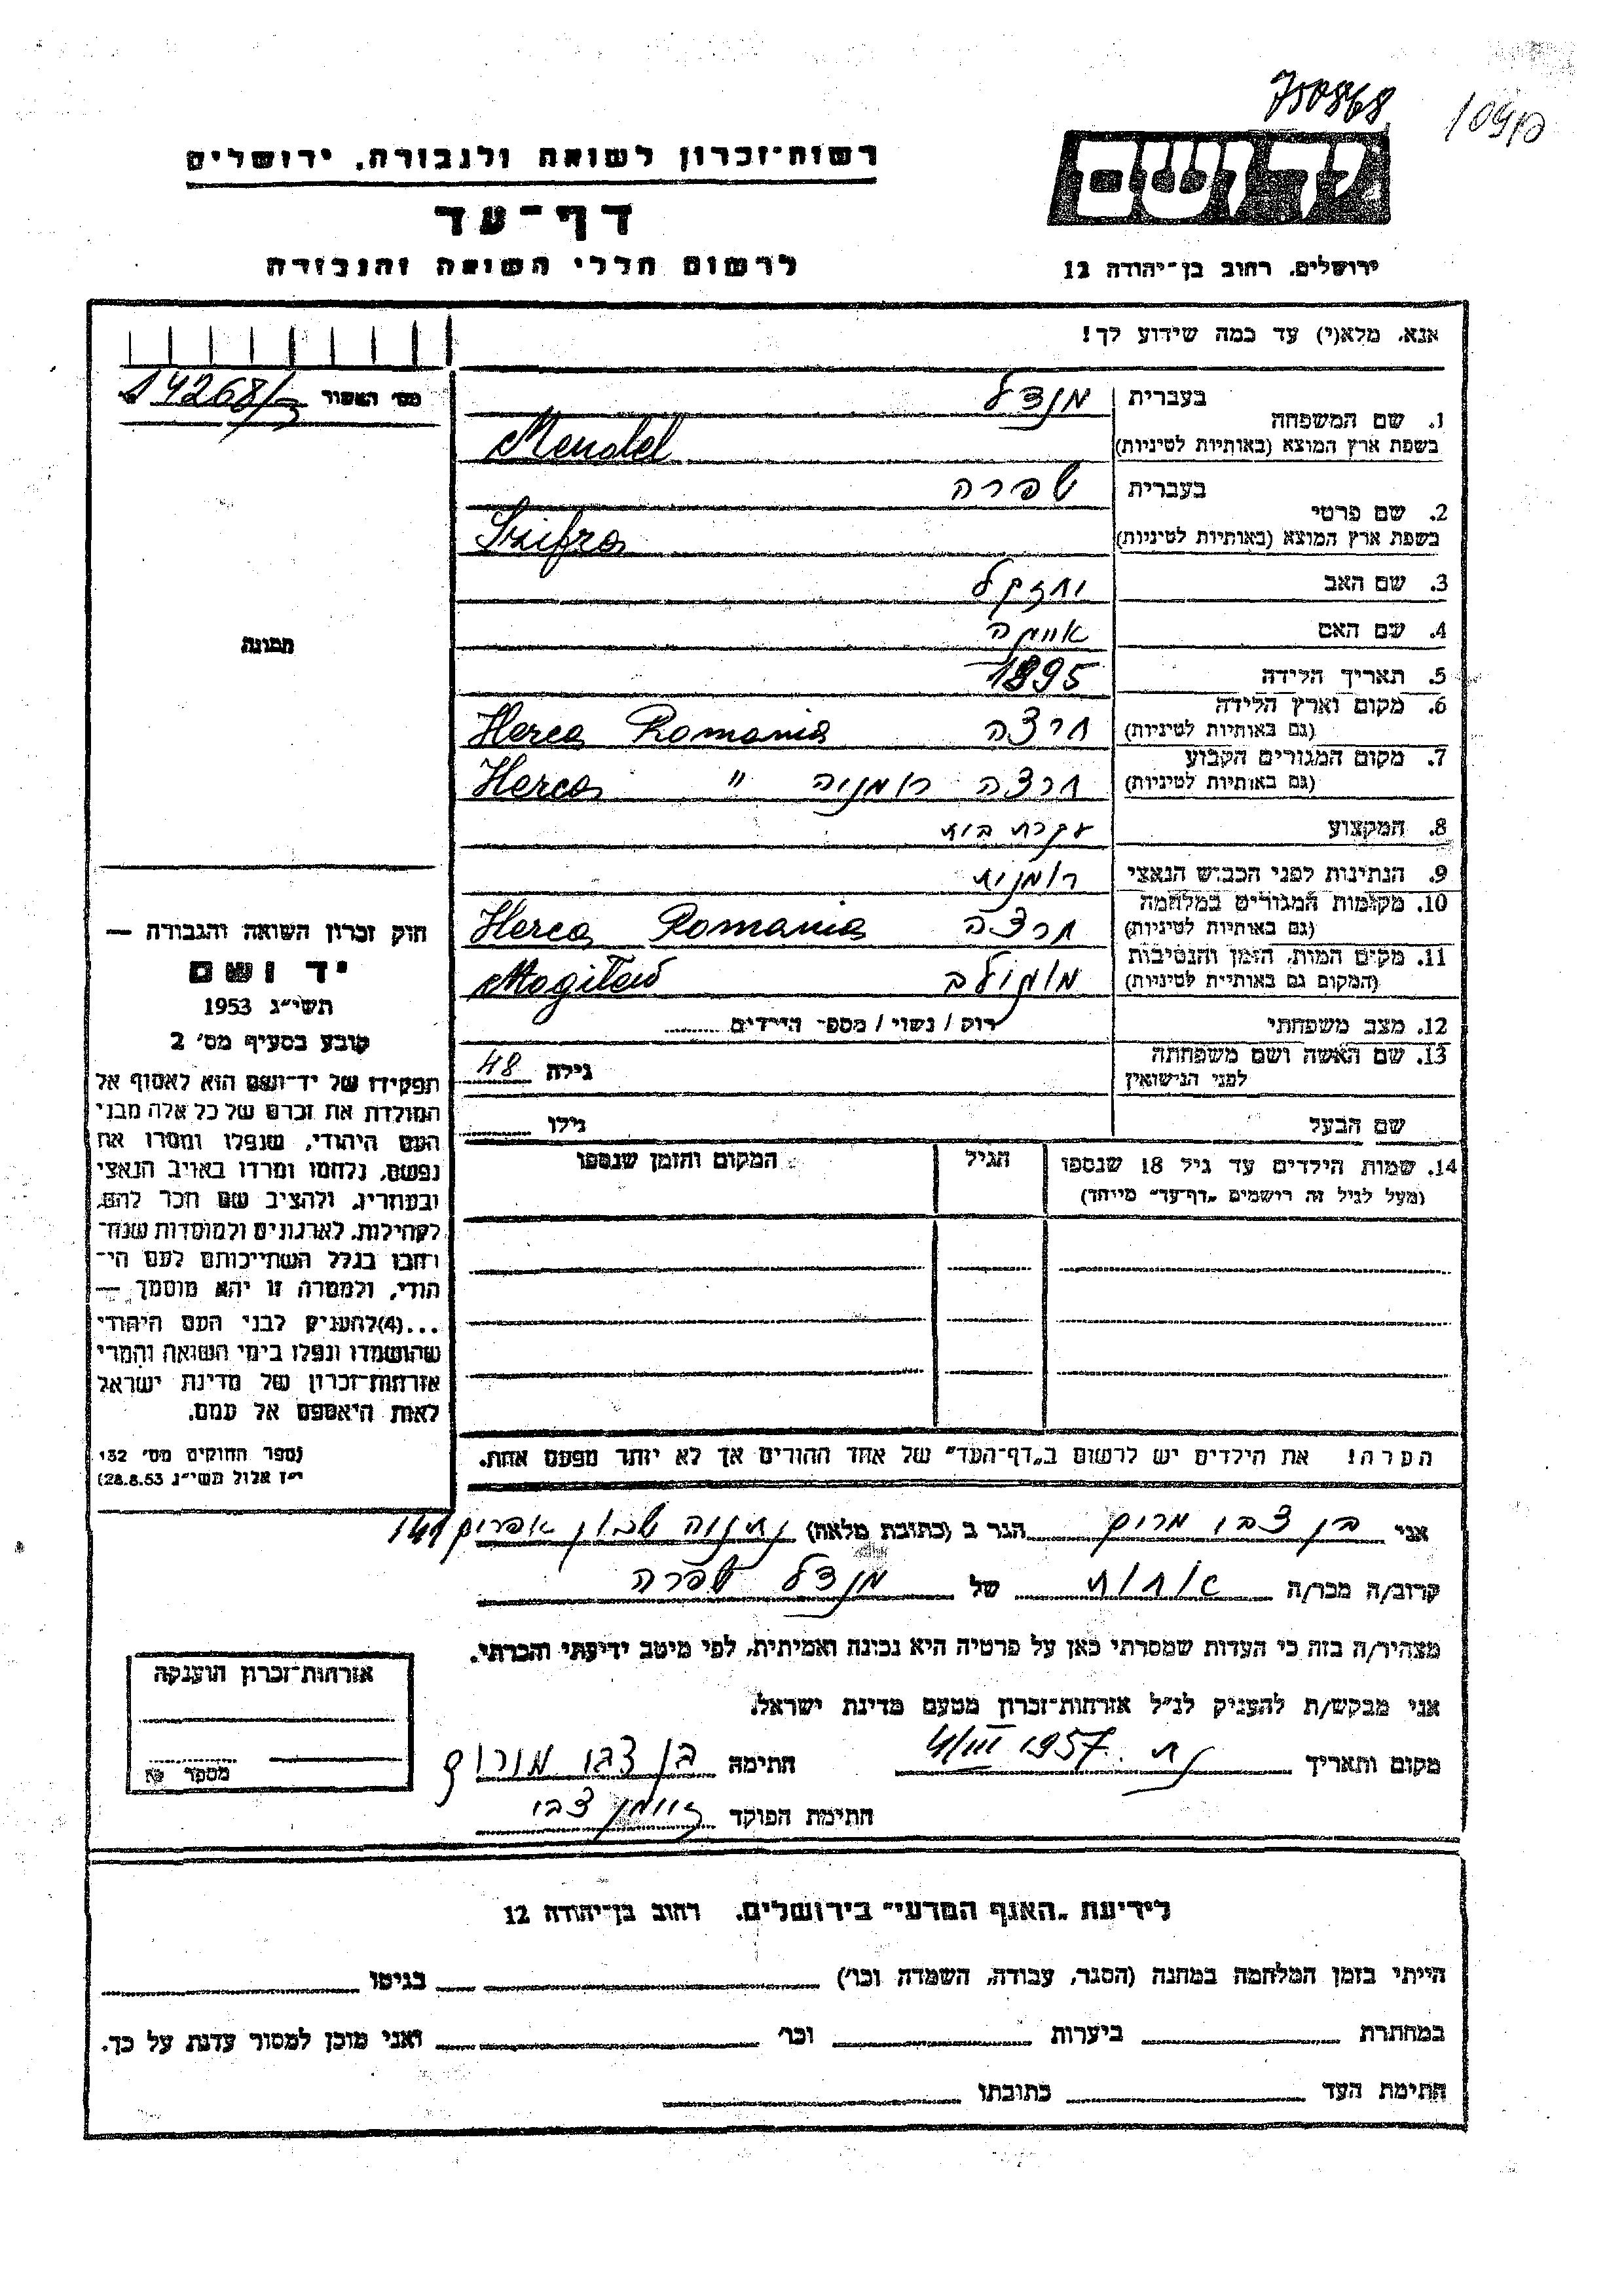 750868
רשות־זכרון לשואה ולגבורה, ירושלים
דף־עד
לרשום חללי השואה והגבורה
יד ושם
ירושלים, רחוב בן־יהודה 12
אנא, מלא(י) עד כמה שידוע לך!
מס' האשור 14268/
1. שם המשפחה בעברית מנדל
בשפת ארץ המוצא (באותיות לטיניות) Mendel
2. שם פרטי בעברית שפרה
בשפת ארץ המוצא (באותיות לטיניות) Szifra
3. שם האב יחזקל
4. שם האם
5. תאריך הלידה 1895
6. מקום וארץ הלידה (גם באותיות לטיניות) חרצה Herca Romania
7. מקום המגורים הקבוע (גם באותיות לטיניות) חרצה רומניה " Herca
8. המקצוע עקרת בית
9. הנתינות לפני הכבוש הנאצי רומנית
10. מקומות המגורים במלחמה (גם באותיות לטיניות) חרצה Herca Romania
11. מקום המות, הזמן והנסיבות (המקום גם באותיות לטיניות) Mogilew
12. מצב משפחתי רוק / נשוי / מספר הילדים
13. שם האשה ושם משפחתה לפני הנישואין גילה 48
שם הבעל גילו
14. שמות הילדים עד גיל 18 שנספו הגיל המקום והזמן שנספו
(מעל לגיל זה רישמים „דף־עד" מייחד)
הערה! את הילדים יש לרשום ב„דף־העד" של אחד ההורים אך לא יותר מפעם אחת.
תמונה
חוק זכרון השואה והגבורה —
יד ושם
תשי"ג 1953
קובע בסעיף מס' 2
תפקידו של יד־ושם הוא לאסוף אל
המולדת את זכרם של כל אלה מבני
העם היהודי, שנפלו ומסרו את
נפשם, נלחמו ומרדו באויב הנאצי
ובעוזריו, ולהציב שם וזכר להם,
לקהילות, לארגונים ולמוסדות שנח־
רבו בגלל השתייכותם לעם הי־
הודי, ולמטרה זו יהא מוסמך —
...(4) להעניק לבני העם היהודי
שהושמדו ונפלו בימי השואה והמרי
אזרחות־זכרון של מדינת ישראל
לאות היאספם אל עמם.
(ספר החוקים מס' 132
י"ז אלול תשי"ג 28.8.53)
אני בן צבי מרים הגר ב (כתובת מלאה) נתניה שכון אפרים
קרוב/ה מכר/ה אחות של מנדל שפרה
מצהיר/ה בזה כי העדות שמסרתי כאן על פרטיה היא נכונה ואמיתית, לפי מיטב ידיעתי והכרתי.
אני מבקש/ת להעניק לנ"ל אזרחות־זכרון מטעם מדינת ישראל.
מקום ותאריך 4/III 1957 חתימה בן צבי
חתימת הפוקד צבי
אזרחות־זכרון הוענקה
מספר
לידיעת „האגף המדעי" בירושלים, רחוב בן־יהודה 12
הייתי בזמן המלחמה במחנה (הסגר, עבודה, השמדה וכו') בגיטו
במחתרת ביערות וכו' ואני מוכן למסור עדות על כך.
חתימת העד כתובתו